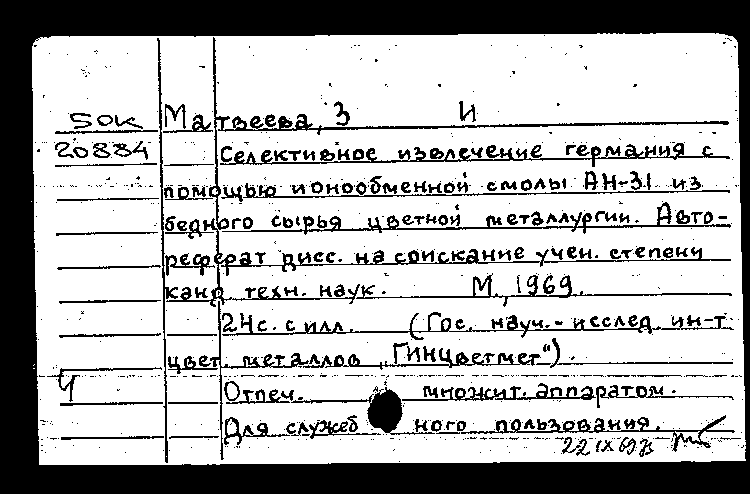 50к Матвеева, З И
20884 Селективное извлечение германия с
помощью ионообменной смолы АН-31 из
бедного сырья цветной металлургии. Авто-
реферат дисс. на соискание учен. степени
канд техн. наук. М., 1969.
24с. с илл. (Гос. науч.-исслед. ин-т
цвет. металлов „Гинцветмет“).
Ч Отпеч. множит. аппаратом.
Для служеб ного пользования.
22 IX 69